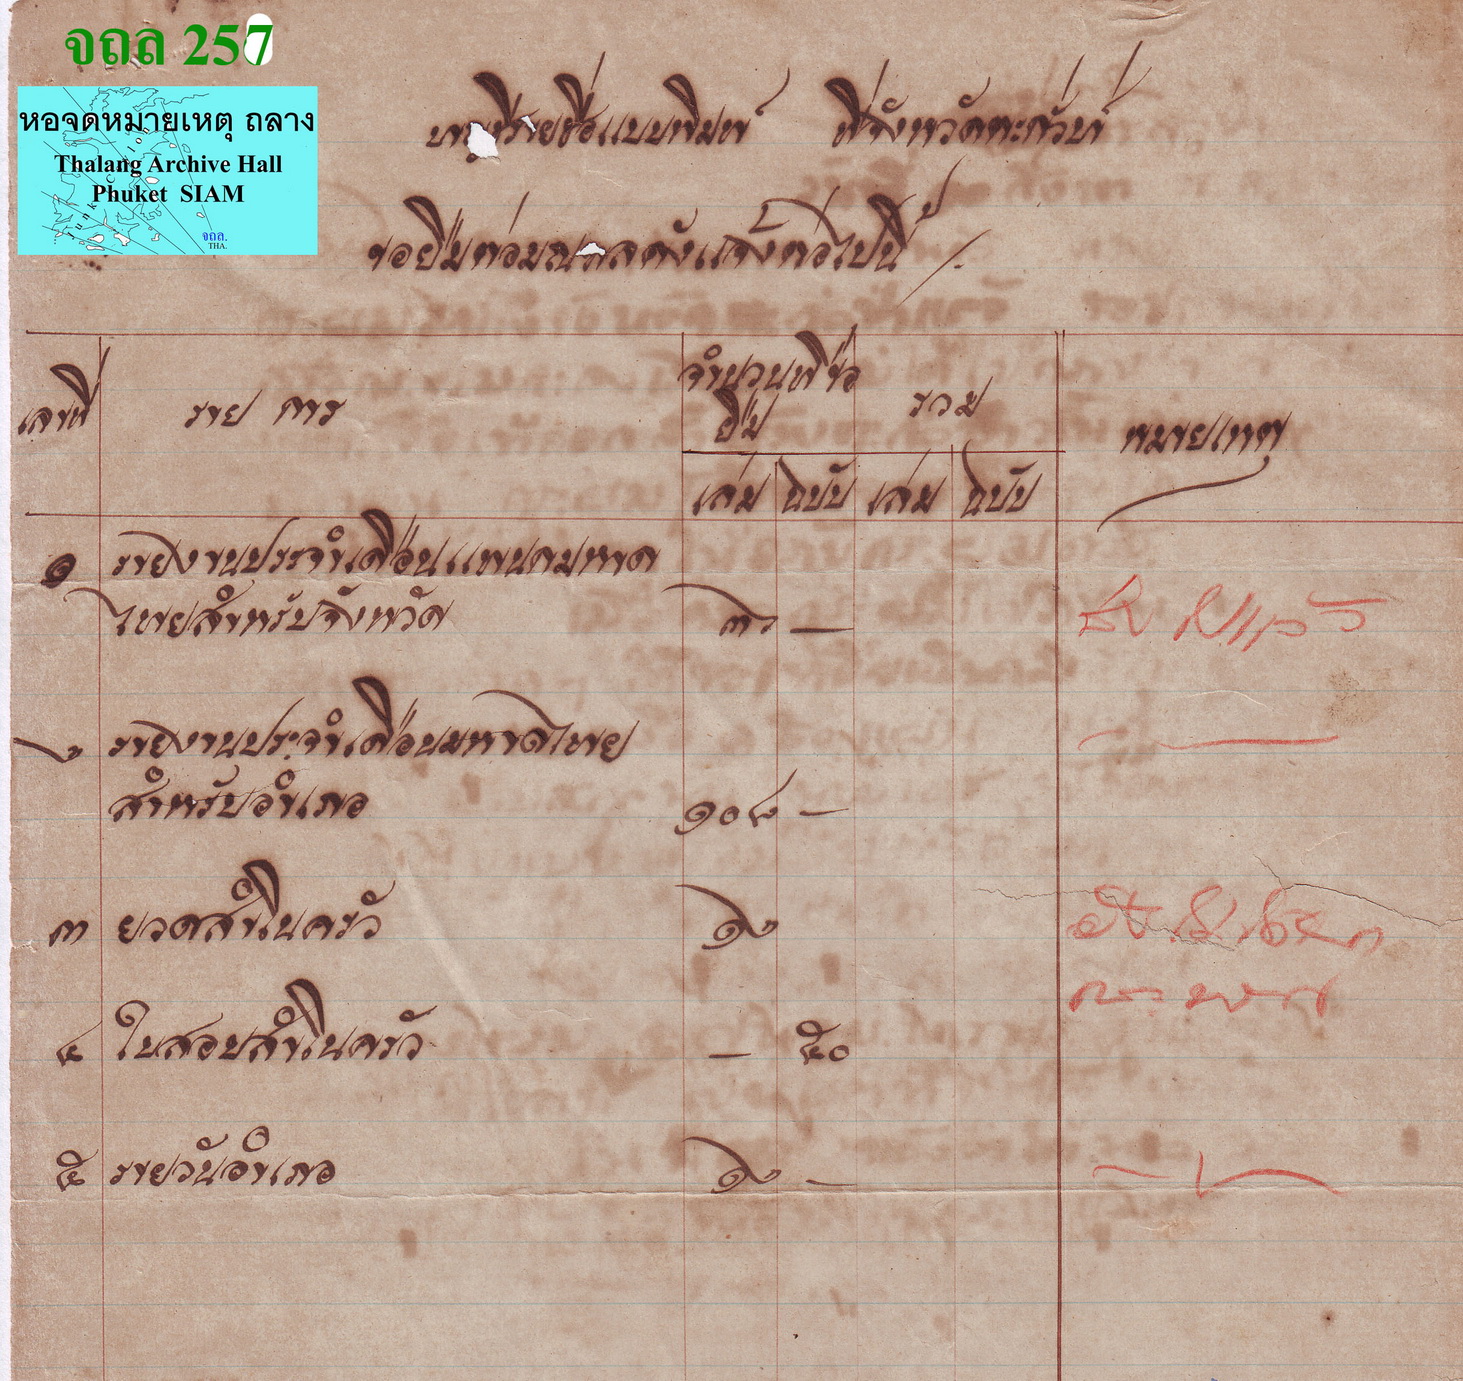 จถล 257
หอจดหมายเหตุ ถลาง
Thalang Archive Hall
Phuket SIAM
จถล.
THA.
บาญชีรายชื่อแบบพิมพ์ ที่จังหวัดตะกั่วป่า
ขอยืมต่อมณฑลดังแจ้งต่อไปนี้
เลขที่
ราย การ
จำนวนที่ขอ
ยืม
รวม
หมายเหตุ
เล่ม ฉบับ เล่ม ฉบับ
๑ รายงานประจำเดือนแพนกมหาด
ไทยสำหรับจังหวัด ๓๖ —
๒ รายงานประจำเดือนมหาดไทย
สำหรับอำเภอ ๑๐๘ —
๓ ยวดสำโนครัว
๔ ใบสอบสำโนครัว — ๕๐
๕ รายวันอำเภอ —